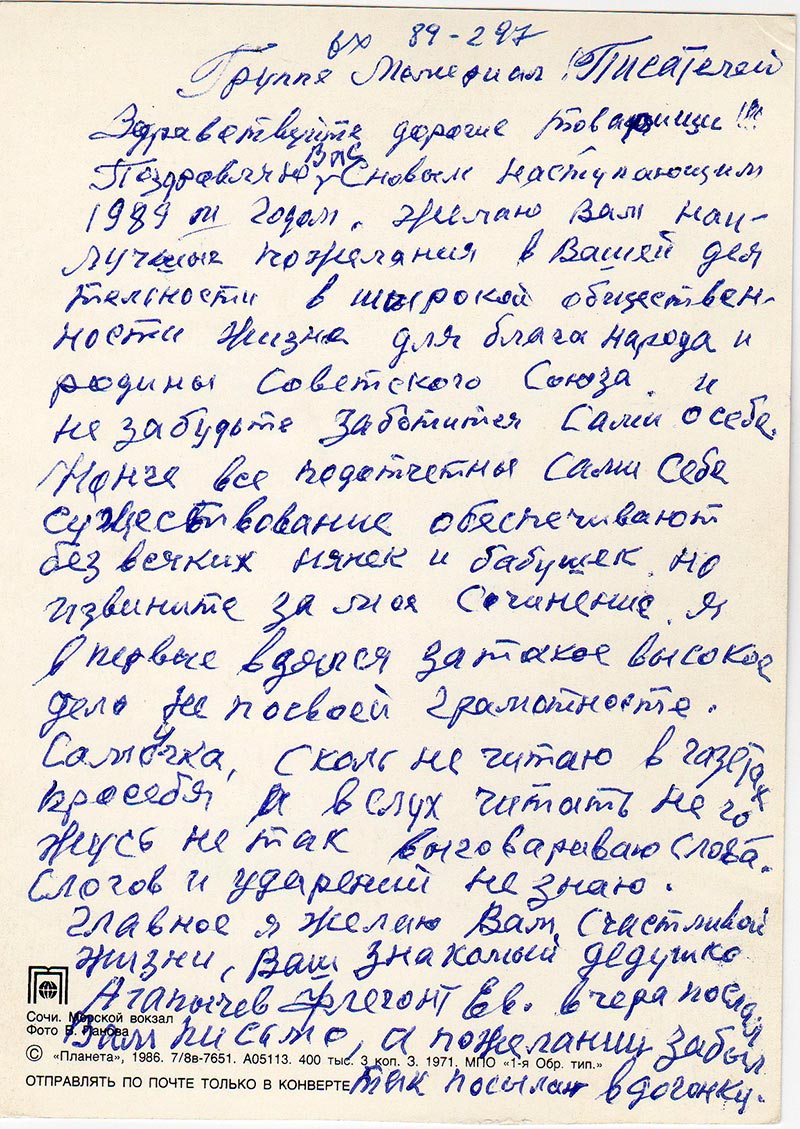 вх 89-297
Группе Мемориал! Писателей
Здравствуйте дорогие товарищи!!!
Поздравляю Вас С новым наступающим
1989 м годом. Желаю Вам наи-
лучшие пожелания в Вашей дея
тельности в широкой обществен-
ности жизне для блага народа и
родины Советского Союза. и
не забудьте Заботится Сами о себе.
Нонче все подотчетны Сами Себе
существование обеспечивают
без всяких нянек и бабушек. но
извините за мое Сочинение. Я
в первые взялся за такое высокое
дело не посвоей грамотносте.
Самоучка, Сколь не читаю в газетах
просебя а в слух читать не го
жусь не так выговариваю слова.
Слогов и ударений не знаю.
Главное я желаю Вам Счастливой
жизни, Ваш знакомый дедушка
Агапычев Флегонт Ев. вчера послал
Вам письмо, а пожелании забыл
так посылаю вдогонку.
Сочи. Морской вокзал
Фото В. Панова
© «Планета», 1986. 7/8в-7651. А05113. 400 тыс. 3 коп. З. 1971. МПО «1-я Обр. тип.»
ОТПРАВЛЯТЬ ПО ПОЧТЕ ТОЛЬКО В КОНВЕРТЕ